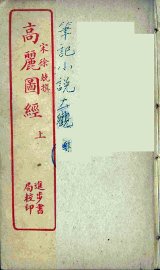 宋徐兢撰
高麗圖經 上
進步書
局校印
筆記小說大觀